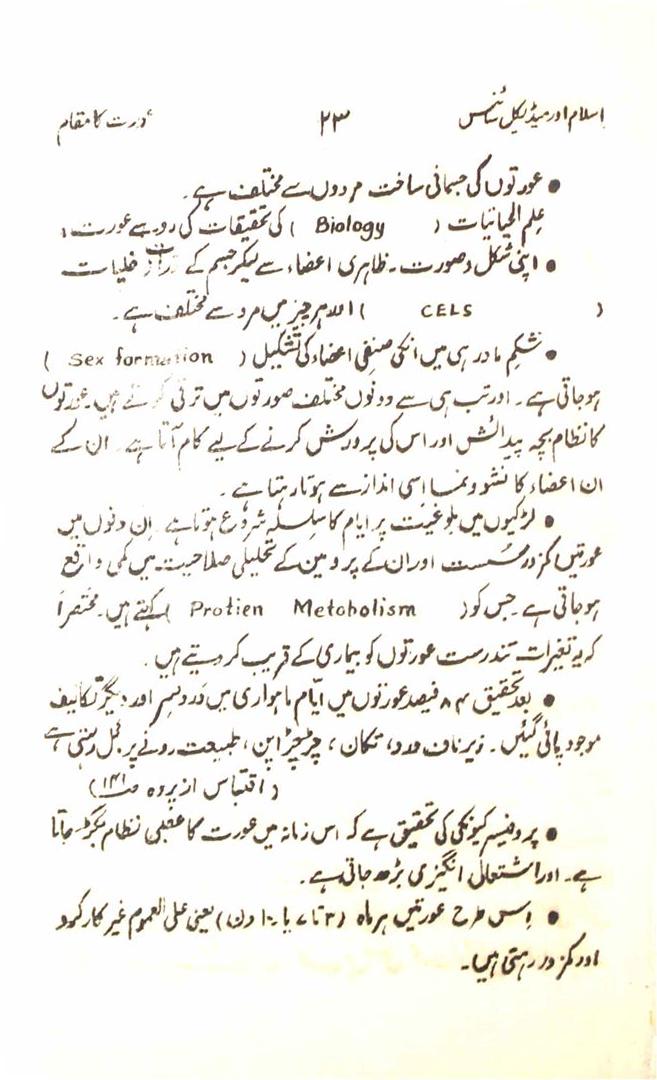 اسلام اور میڈیکل سائنس ۲۳ عورت کا مقام
● عورتوں کی جسمانی ساخت مردوں سے مختلف ہے۔
علم الحیاتیات ( Biology ) کی تحقیقات کی رو سے عورت
● اپنی شکل و صورت۔ ظاہری اعضاء سے لیکر جسم کے خلیات
( CELS ) اللہ ہر چیز میں مرد سے مختلف ہے۔
● شکمِ مادر ہی میں انکی صنفی اعضاء کی تشکیل ( Sex formation )
ہو جاتی ہے۔ اور تب ہی سے دونوں مختلف صورتوں میں ترقی کرتے ہیں۔ عورتوں
کا نظام بچہ پیدائش اور اس کی پرورش کرنے کے لیے کام آتا ہے۔ ان کے
ان اعضاء کا نشوونما اسی انداز سے ہوتا رہتا ہے۔
● لڑکیوں میں بلوغیت پر ایام کا سلسلہ شروع ہوتا ہے۔ اِن دنوں میں
عورتیں کمزور سُست اور ان کے پروٹین کے تحلیلی صلاحیت میں کمی واقع
ہو جاتی ہے۔ جس کو ( Protien Metoholism ) کہتے ہیں۔ مختصراً
کہ یہ تغیرات تندرست عورتوں کو بیماری کے قریب کر دیتے ہیں۔
● بعد تحقیق ۸۴ فیصد عورتوں میں ایّام ماہواری میں دردِ سر اور دیگر تکالیف
موجود پائی گئیں۔ زیر ناف درد، تکان، چڑچڑاپن، طبیعت رونے پر مُل رہتی ہے
( اقتباس از پردہ صـ ۱۴۱ )
● پروفیسر کیونکی کی تحقیق ہے کہ اس زمانہ میں عورت کا عصبی نظام بگڑ جاتا
ہے۔ اور اشتعال انگیزی بڑھ جاتی ہے۔
● اِس طرح عورتیں ہر ماہ (۳ تا ۷ یا ۱۰ دن) یعنی علی العموم غیر کارکرد
اور کمزور رہتی ہیں۔